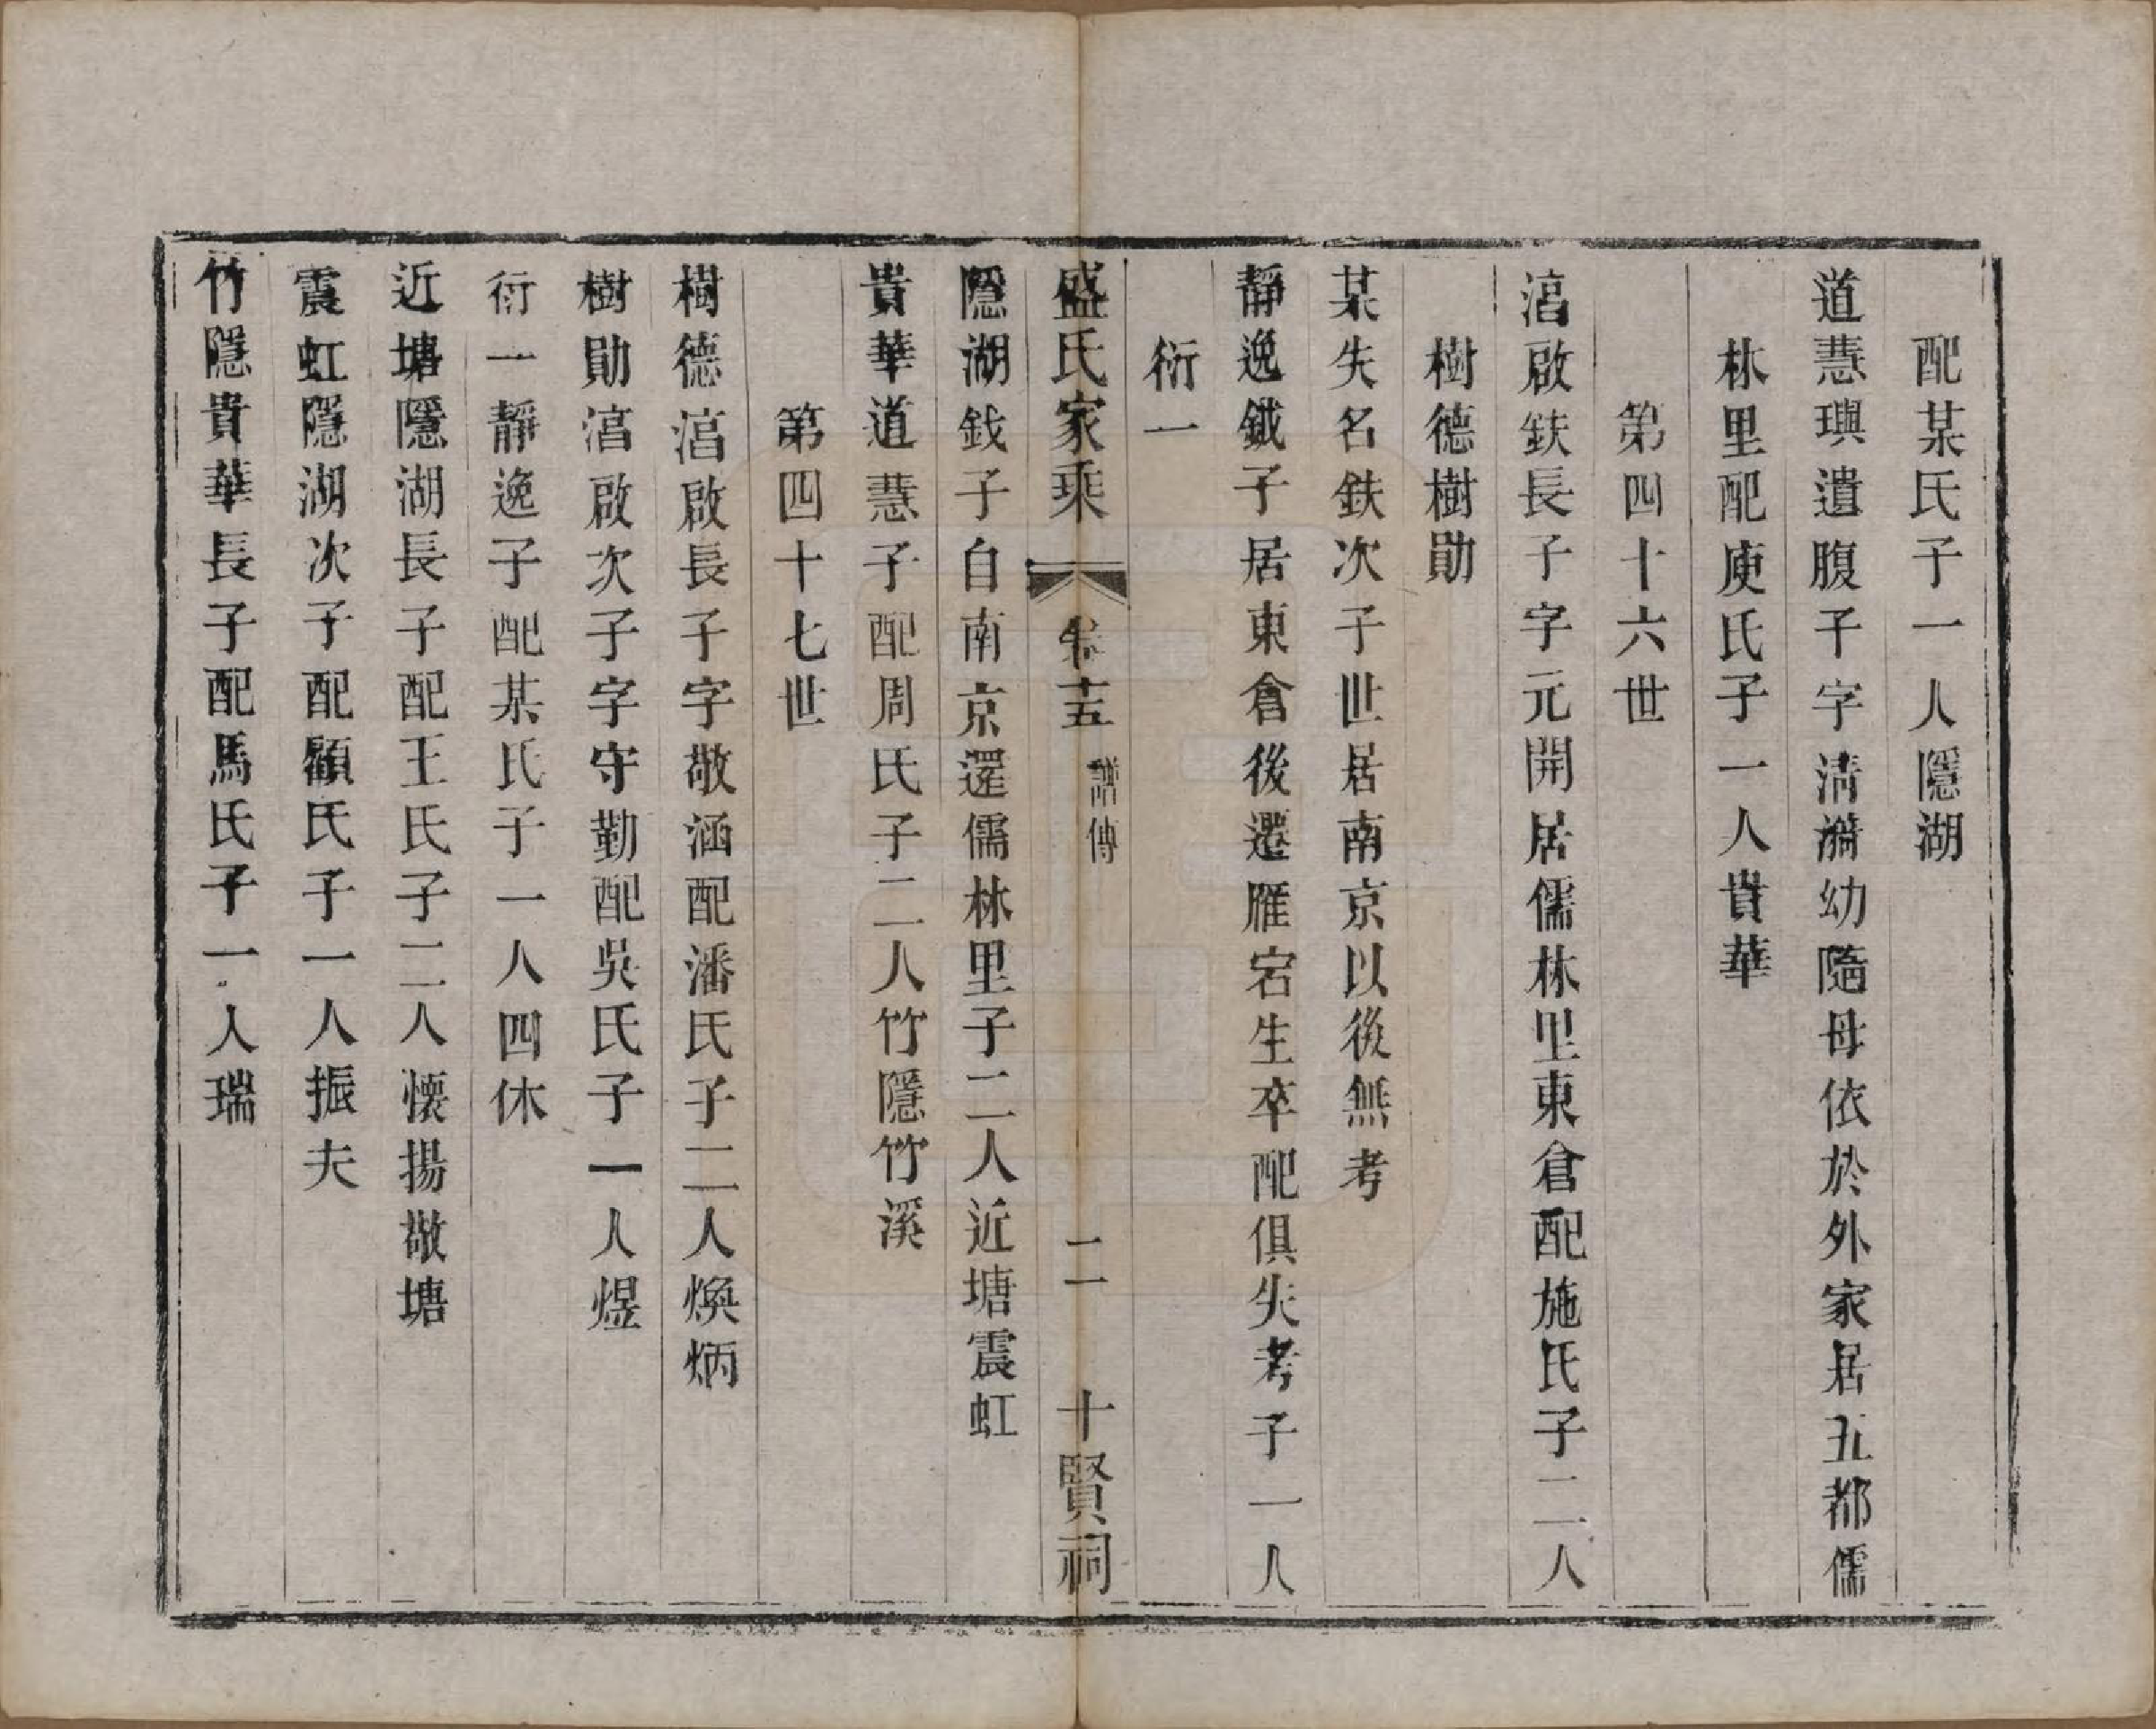 配某氏子一人隱湖
道慧璵遺腹子字清漪幼隨母依於外家居五都儒
林里配庾氏子一人貴華
第四十六世
滈啟鈇長子字元開居儒林里東倉配施氏子二人
樹德樹勛
某失名鈇次子世居南京以後無考
靜逸鉞子居東倉後遷雁宕生卒配俱失考子一人
衍一
盛氏家乘 卷十五 譜傳 二 十賢祠
隱湖錢子自南京還儒林里子二人近塘震虹
貴華道慧子配周氏子二人竹隱竹溪
第四十七世
樹德滈啟長子字敬涵配潘氏子二人煥炳
樹勛滈啟次子字守勤配吳氏子一人煜
衍一靜逸子配某氏子一人四休
近塘隱湖長子配王氏子二人懷揚敬塘
震虹隱湖次子配顧氏子一人振夫
竹隱貴華長子配馬氏子一人瑞